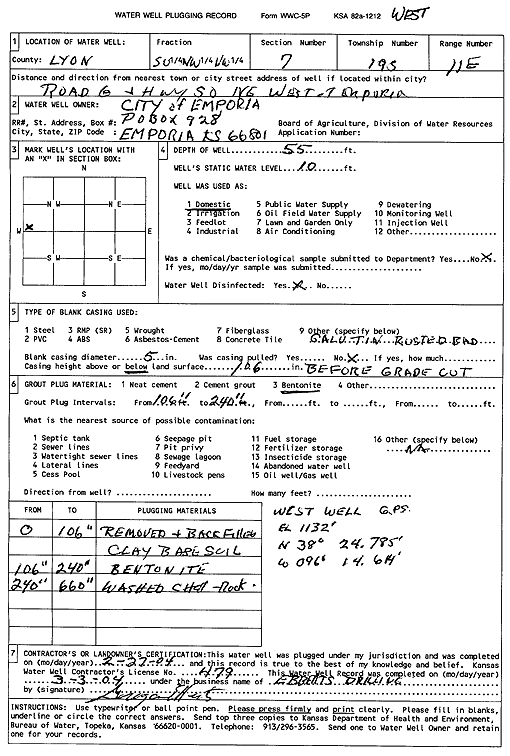 WATER WELL PLUGGING RECORD Form WWC-5P KSA 82a-1212 WEST
1 LOCATION OF WATER WELL: Fraction Section Number Township Number Range Number
County: LYON SW1/4NW1/4NW1/4 7 19S 11E
Distance and direction from nearest town or city street address of well if located within city?
ROAD G + HWY 50 WEST-EMPORIA
2 WATER WELL OWNER: CITY of EMPORIA
RR#, St. Address, Box #: PO BOX 928 Board of Agriculture, Division of Water Resources
City, State, ZIP Code : EMPORIA KS 66801 Application Number:
3 MARK WELL'S LOCATION WITH AN "X" IN SECTION BOX:
N
NW NE
W X E
SW SE
S
4 DEPTH OF WELL......55......ft.
WELL'S STATIC WATER LEVEL...10....ft.
WELL WAS USED AS:
1 Domestic 5 Public Water Supply 9 Dewatering
2 Irrigation 6 Oil Field Water Supply 10 Monitoring Well
3 Feedlot 7 Lawn and Garden Only 11 Injection Well
4 Industrial 8 Air Conditioning 12 Other...........
Was a chemical/bacteriological sample submitted to Department? Yes....No X.
If yes, mo/day/yr sample was submitted..................
Water Well Disinfected: Yes X.. No.....
5 TYPE OF BLANK CASING USED:
1 Steel 3 RMP (SR) 5 Wrought 7 Fiberglass 9 Other (specify below)
2 PVC 4 ABS 6 Asbestos-Cement 8 Concrete Tile GALV-TIN RUSTED BAD
Blank casing diameter...5...in. Was casing pulled? Yes...... No X.. If yes, how much.........
Casing height above or below land surface.....106....in. BEFORE GRADE CUT
6 GROUT PLUG MATERIAL: 1 Neat cement 2 Cement grout 3 Bentonite 4 Other..............
Grout Plug Intervals: From 106" to 240" From......ft. to ......ft., From......to......ft.
What is the nearest source of possible contamination:
1 Septic tank 6 Seepage pit 11 Fuel storage 16 Other (specify below)
2 Sewer lines 7 Pit privy 12 Fertilizer storage NA
3 Watertight sewer lines 8 Sewage lagoon 13 Insecticide storage
4 Lateral lines 9 Feedyard 14 Abandoned water well
5 Cess Pool 10 Livestock pens 15 Oil well/Gas well
Direction from well? .................. How many feet? ..................
FROM TO PLUGGING MATERIALS
0 106" REMOVED + BACK Filled
CLAY BARE SOIL
106" 240" BENTONITE
240" 660" WASHED CHAT-Rock.
WEST WELL G.P.S.
EL 1132'
N 38° 24.785'
W 096° 14.614'
7 CONTRACTOR'S OR LANDOWNER'S CERTIFICATION: This water well was plugged under my jurisdiction and was completed
on (mo/day/year) 2-27-04 and this record is true to the best of my knowledge and belief. Kansas
Water Well Contractor's License No. ..479... This Water Well Record was completed on (mo/day/year)
3-3-04 under the business name of EBERTS DRILLING
by (signature)
INSTRUCTIONS: Use typewriter or ball point pen. Please press firmly and print clearly. Please fill in blanks,
underline or circle the correct answers. Send top three copies to Kansas Department of Health and Environment,
Bureau of Water, Topeka, Kansas 66620-0001. Telephone: 913/296-3565. Send one to Water Well Owner and retain
one for your records.